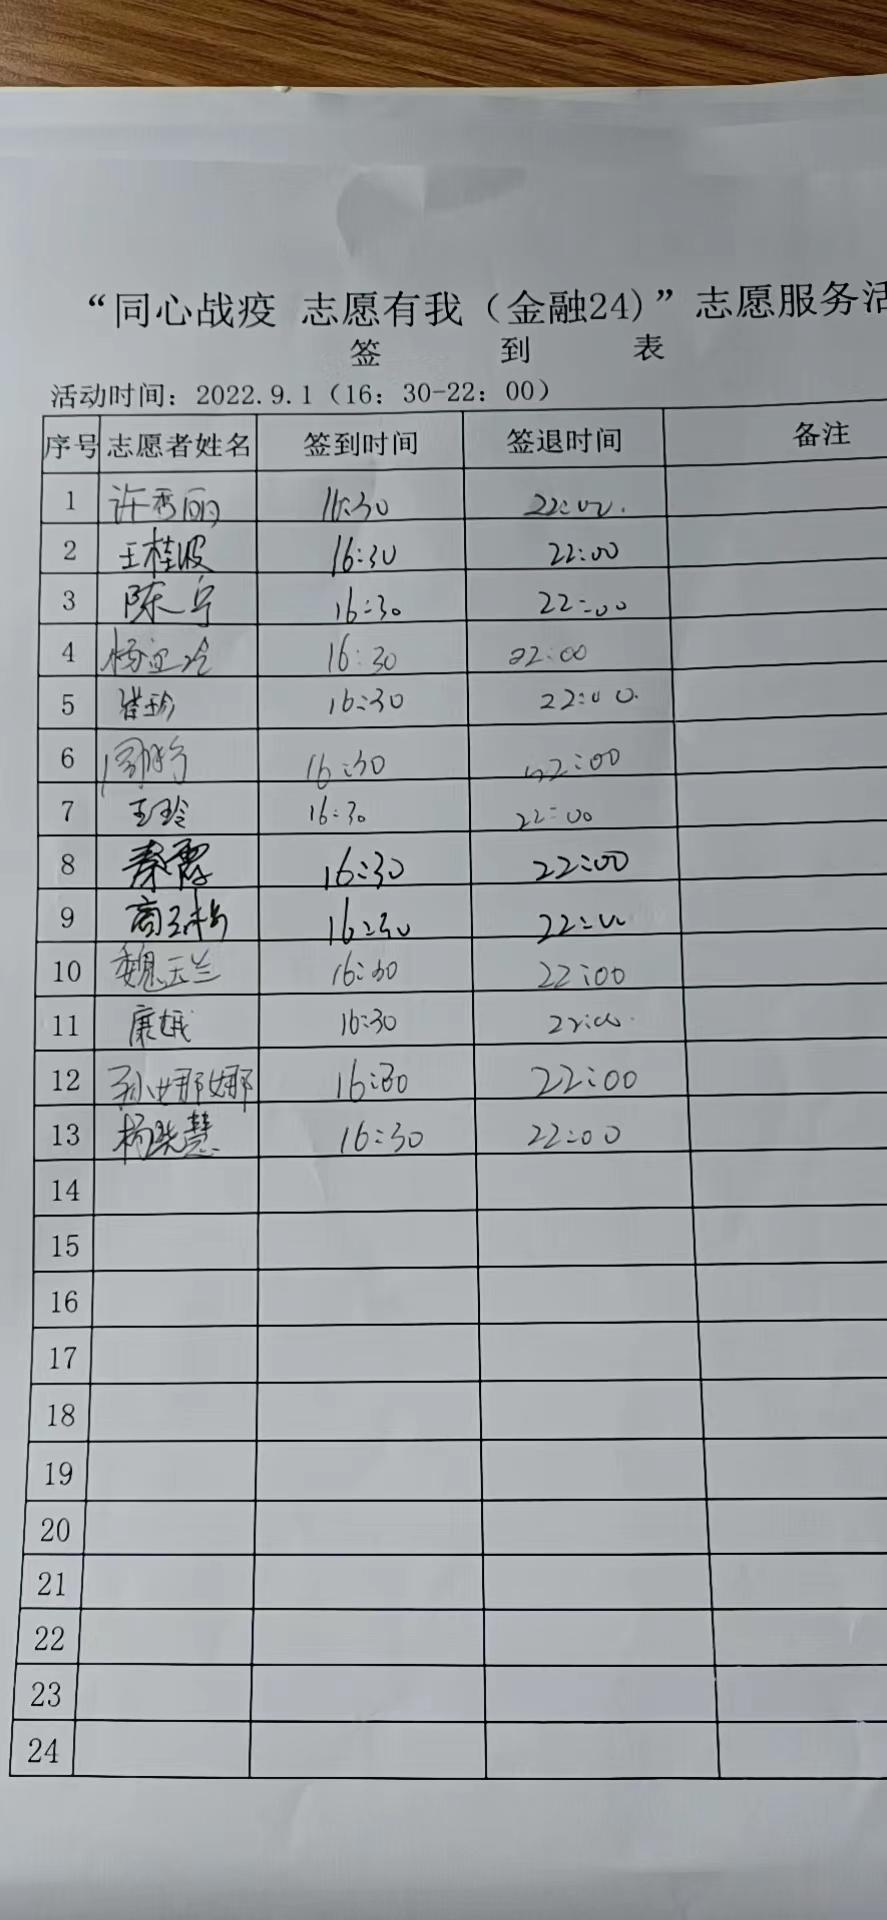 “同心战疫 志愿有我（金融24)”志愿服务活
签 到 表
活动时间：2022.9.1（16：30-22：00）
序号 志愿者姓名 签到时间 签退时间 备注
1 许秀丽 16:30 22:00.
2 王桂波 16:30 22:00
3 陈宁 16:30 22:00
4 16:30 22:00
5 崔珍 16:30 22:00.
6 16:30 22:00
7 王玲 16:30 22:00
8 秦霞 16:30 22:00
9 商玉梅 16:30 22:00
10 魏玉兰 16:30 22:00
11 康娥 16:30 22:00.
12 孙娜娜 16:30 22:00
13 杨晓慧 16:30 22:00
14
15
16
17
18
19
20
21
22
23
24